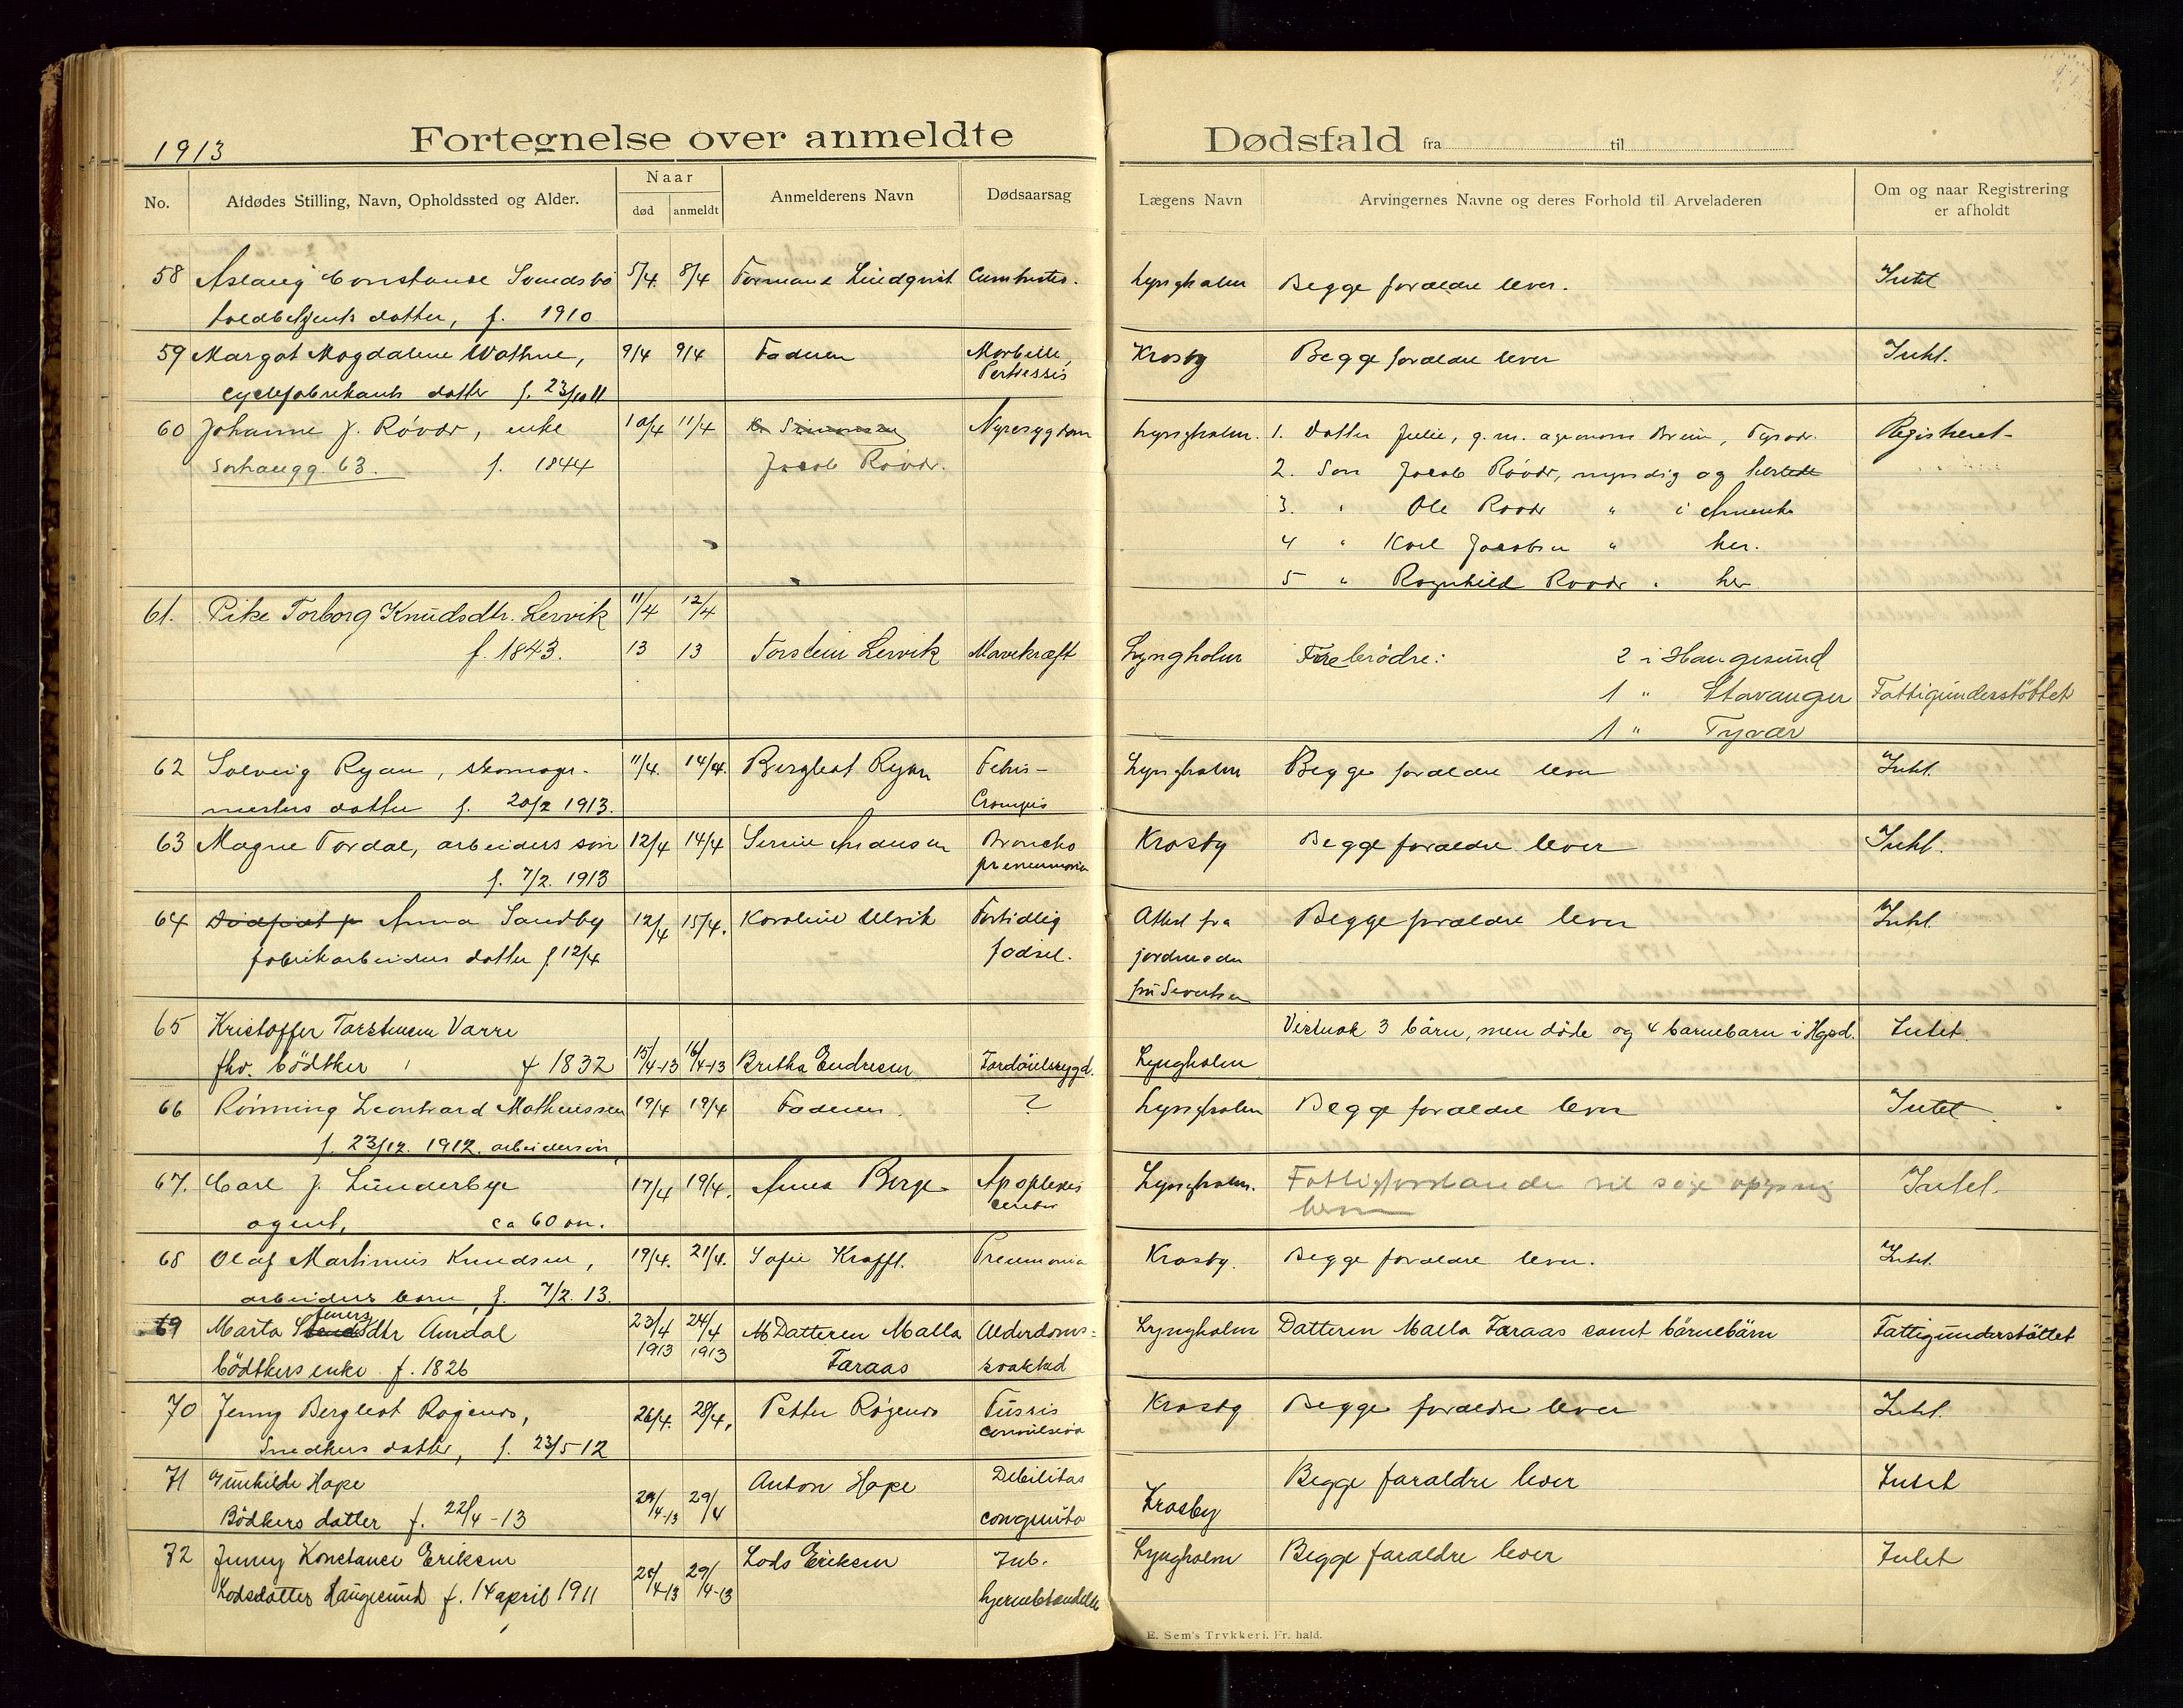 1913
Fortegnelse over anmeldte Dødsfald fra til
No.
Afdødes Stilling, Navn, Opholdssted og Alder.
Naar
død
anmeldt
Anmelderens Navn
Dødsaarsag
Lægens Navn
Arvingernes Navne og deres Forhold til Arveladeren
Om og naar Registrering
er afholdt
58 Aslaug Constanse 5/4. 8/4 Formand Lindqvist Lyngholm Begge forældre lever. Intet
datter, f. 1910
59 Margot Magdalene Wathne, 9/4 9/4 Faderen Morbille, Krosby Begge forældre lever Intet.
cyclefabrikants datter f. 23/10 11 Pertussis
60 Johanne J. Røvær, enke 10/4 11/4 Nyresygdom Lyngholm. 1. Datter Julie, g. m. Registreret
Sørhaugg. 63. f. 1844 Jacob Røvær. 2. Søn Jacob Røvær, myndig og
3. " Ole Røvær " i Amerika
4 " Karl Jacobsen " her.
5 " Ragnhild Røvær " her
61. Pike Torborg Knudsdtr. Lervik 11/4 12/4
f. 1843. 13 13 Torstein Lervik Mavekræft Lyngholm Fire brødre: 2 i Haugesund
1 " Stavanger Fattigunderstøttet
1 " Tysvær
62 Solveig Ryan, skomager- 11/4. 14/4. Bergliot Ryan Lyngholm Begge forældre lever Intet.
mesters datter f. 20/2 1913.
63 Magne Førdal, arbeiders søn 12/4 14/4 Broncho Krosby Begge forældre lever Intet.
f. 7/2. 1913 pneumonia
64 Anna Sandby 12/4 15/4. Karoline Ulvik Fortidlig Attest fra Begge forældre lever Intet.
fabrikarbeiders datter f. 12/4 fødsel. jordmoder
fru Sivertsen
65 Kristoffer Torstensen Varre 3 børn, men døde og 4 barnebarn i Hgsd. Intet.
fhv. bødtker f 1832 15/4-13 16/4-13 Britha Endresen Fordøielsessygd. Lyngholm
66 Rønning Leonhard Mathiassen 19/4 19/4 Faderen. ? Lyngholm Begge forældre lever Intet
f. 23/12. 1912. arbeidersøn
67. Carl J. Lunderbye 17/4 19/4. Anna Berge Apoplexis Lyngholm. Intet.
agent, ca 60 år.
68 Olaf Martinius Knudsen, 19/4. 21/4. Sofie Krafft. Pneumonia Krosby. Begge forældre lever. Intet.
arbeiders barn, f. 7/2. 13.
69 Marta dtr Aardal 23/4 1913 24/4 1913 Datteren Malla Alderdoms= Lyngholm Datteren Malla Faraas samt børnebørn Fattigunderstøttet
bødtkers enke f. 1826 Faraas svakhed
70 Jenny Bergliot Røjenes, 26/4. 28/4, Petter Røjenes Tussis Krosby Begge forældre lever Intet.
Snedkers datter, f. 23/5 12 convulsiva
71 Gunhilde Hope Anton Hope Debilitas Begge foraldre lever Intet
Bødkers datter f. 22/4-13 29/4 congenita Krosby
72 Jenny Konstance Eriksen Lods Eriksen Tub. Lyngholm Begge foraldre lever Intet
Lodsdatter Haugesund f. 14 april 1911 29/4-13 hjernebetændelse
E. Sem's Trykkeri. Fr. hald.